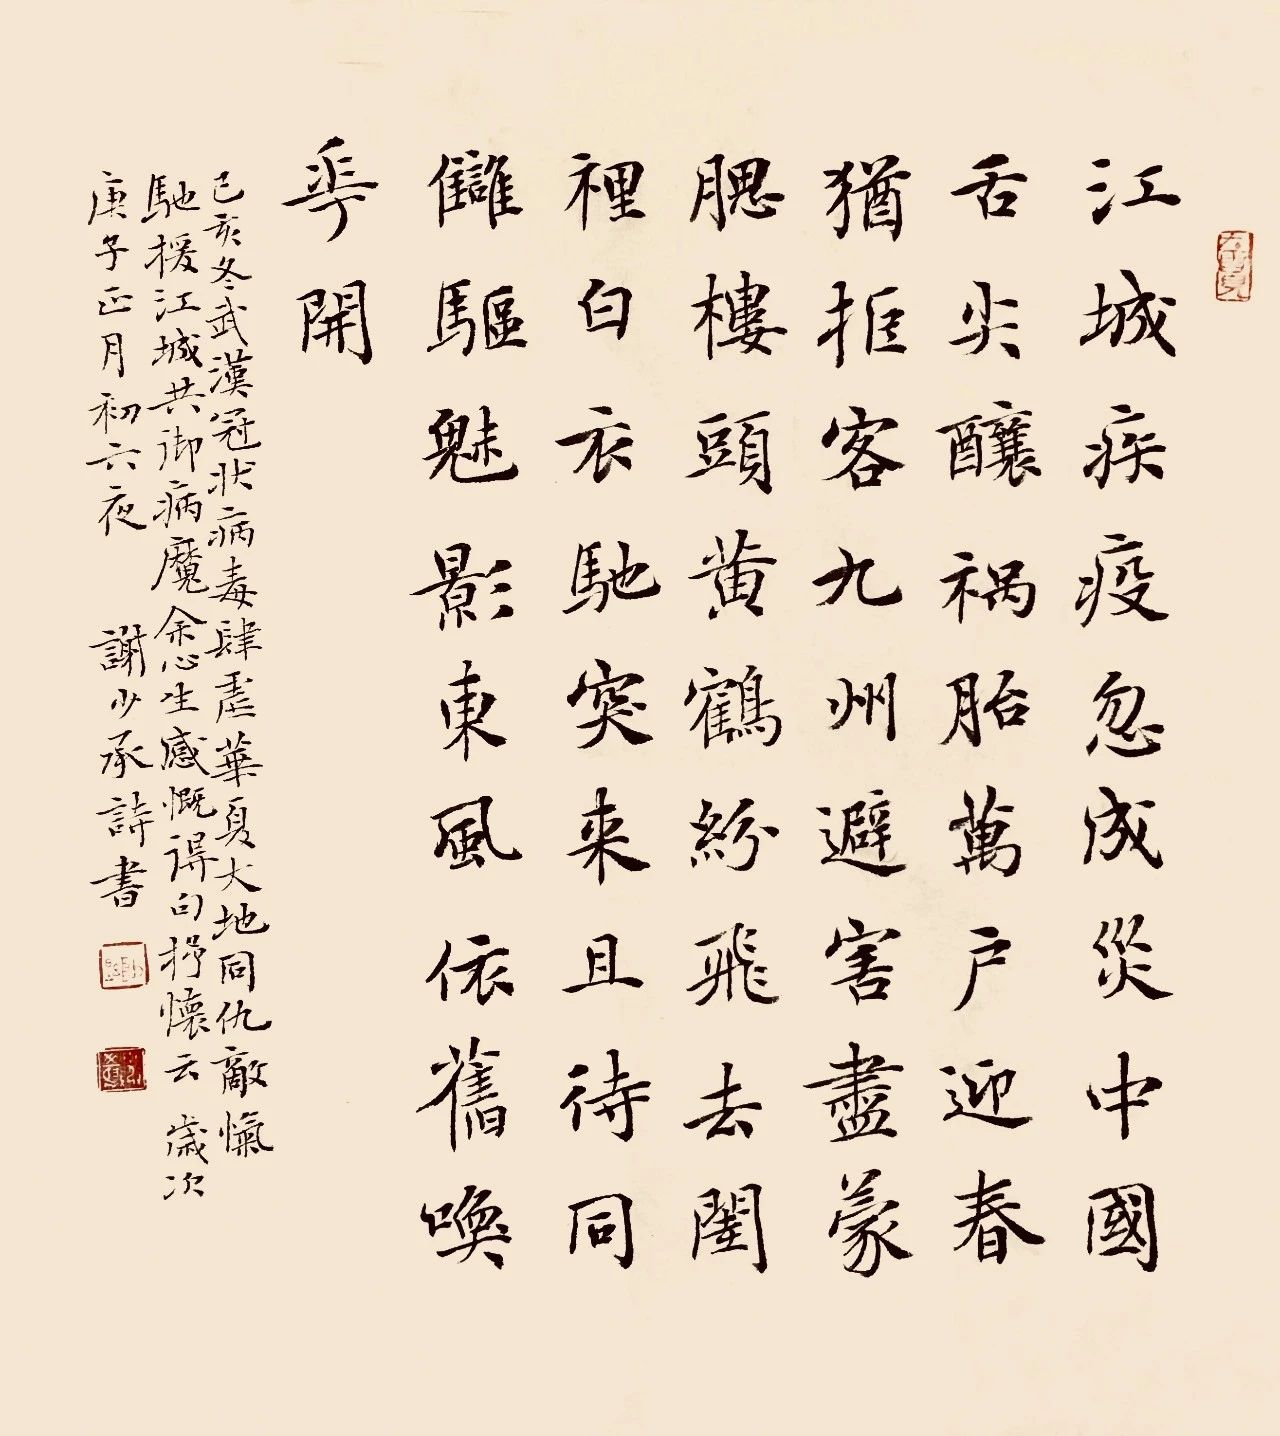 江城疾疫忽成災中國
舌尖釀祸胎萬户迎春
猶拒客九州避害盡蒙
腮樓頭黄鶴紛飛去閨
裡白衣馳突来且待同
讎驅魅影東風依舊喚
華開
己亥冬武漢冠狀病毒肆虐華夏大地同仇敵愾
馳援江城共御病魔余心生感慨得句抒懷云歲次
庚子正月初六夜 謝少承詩書